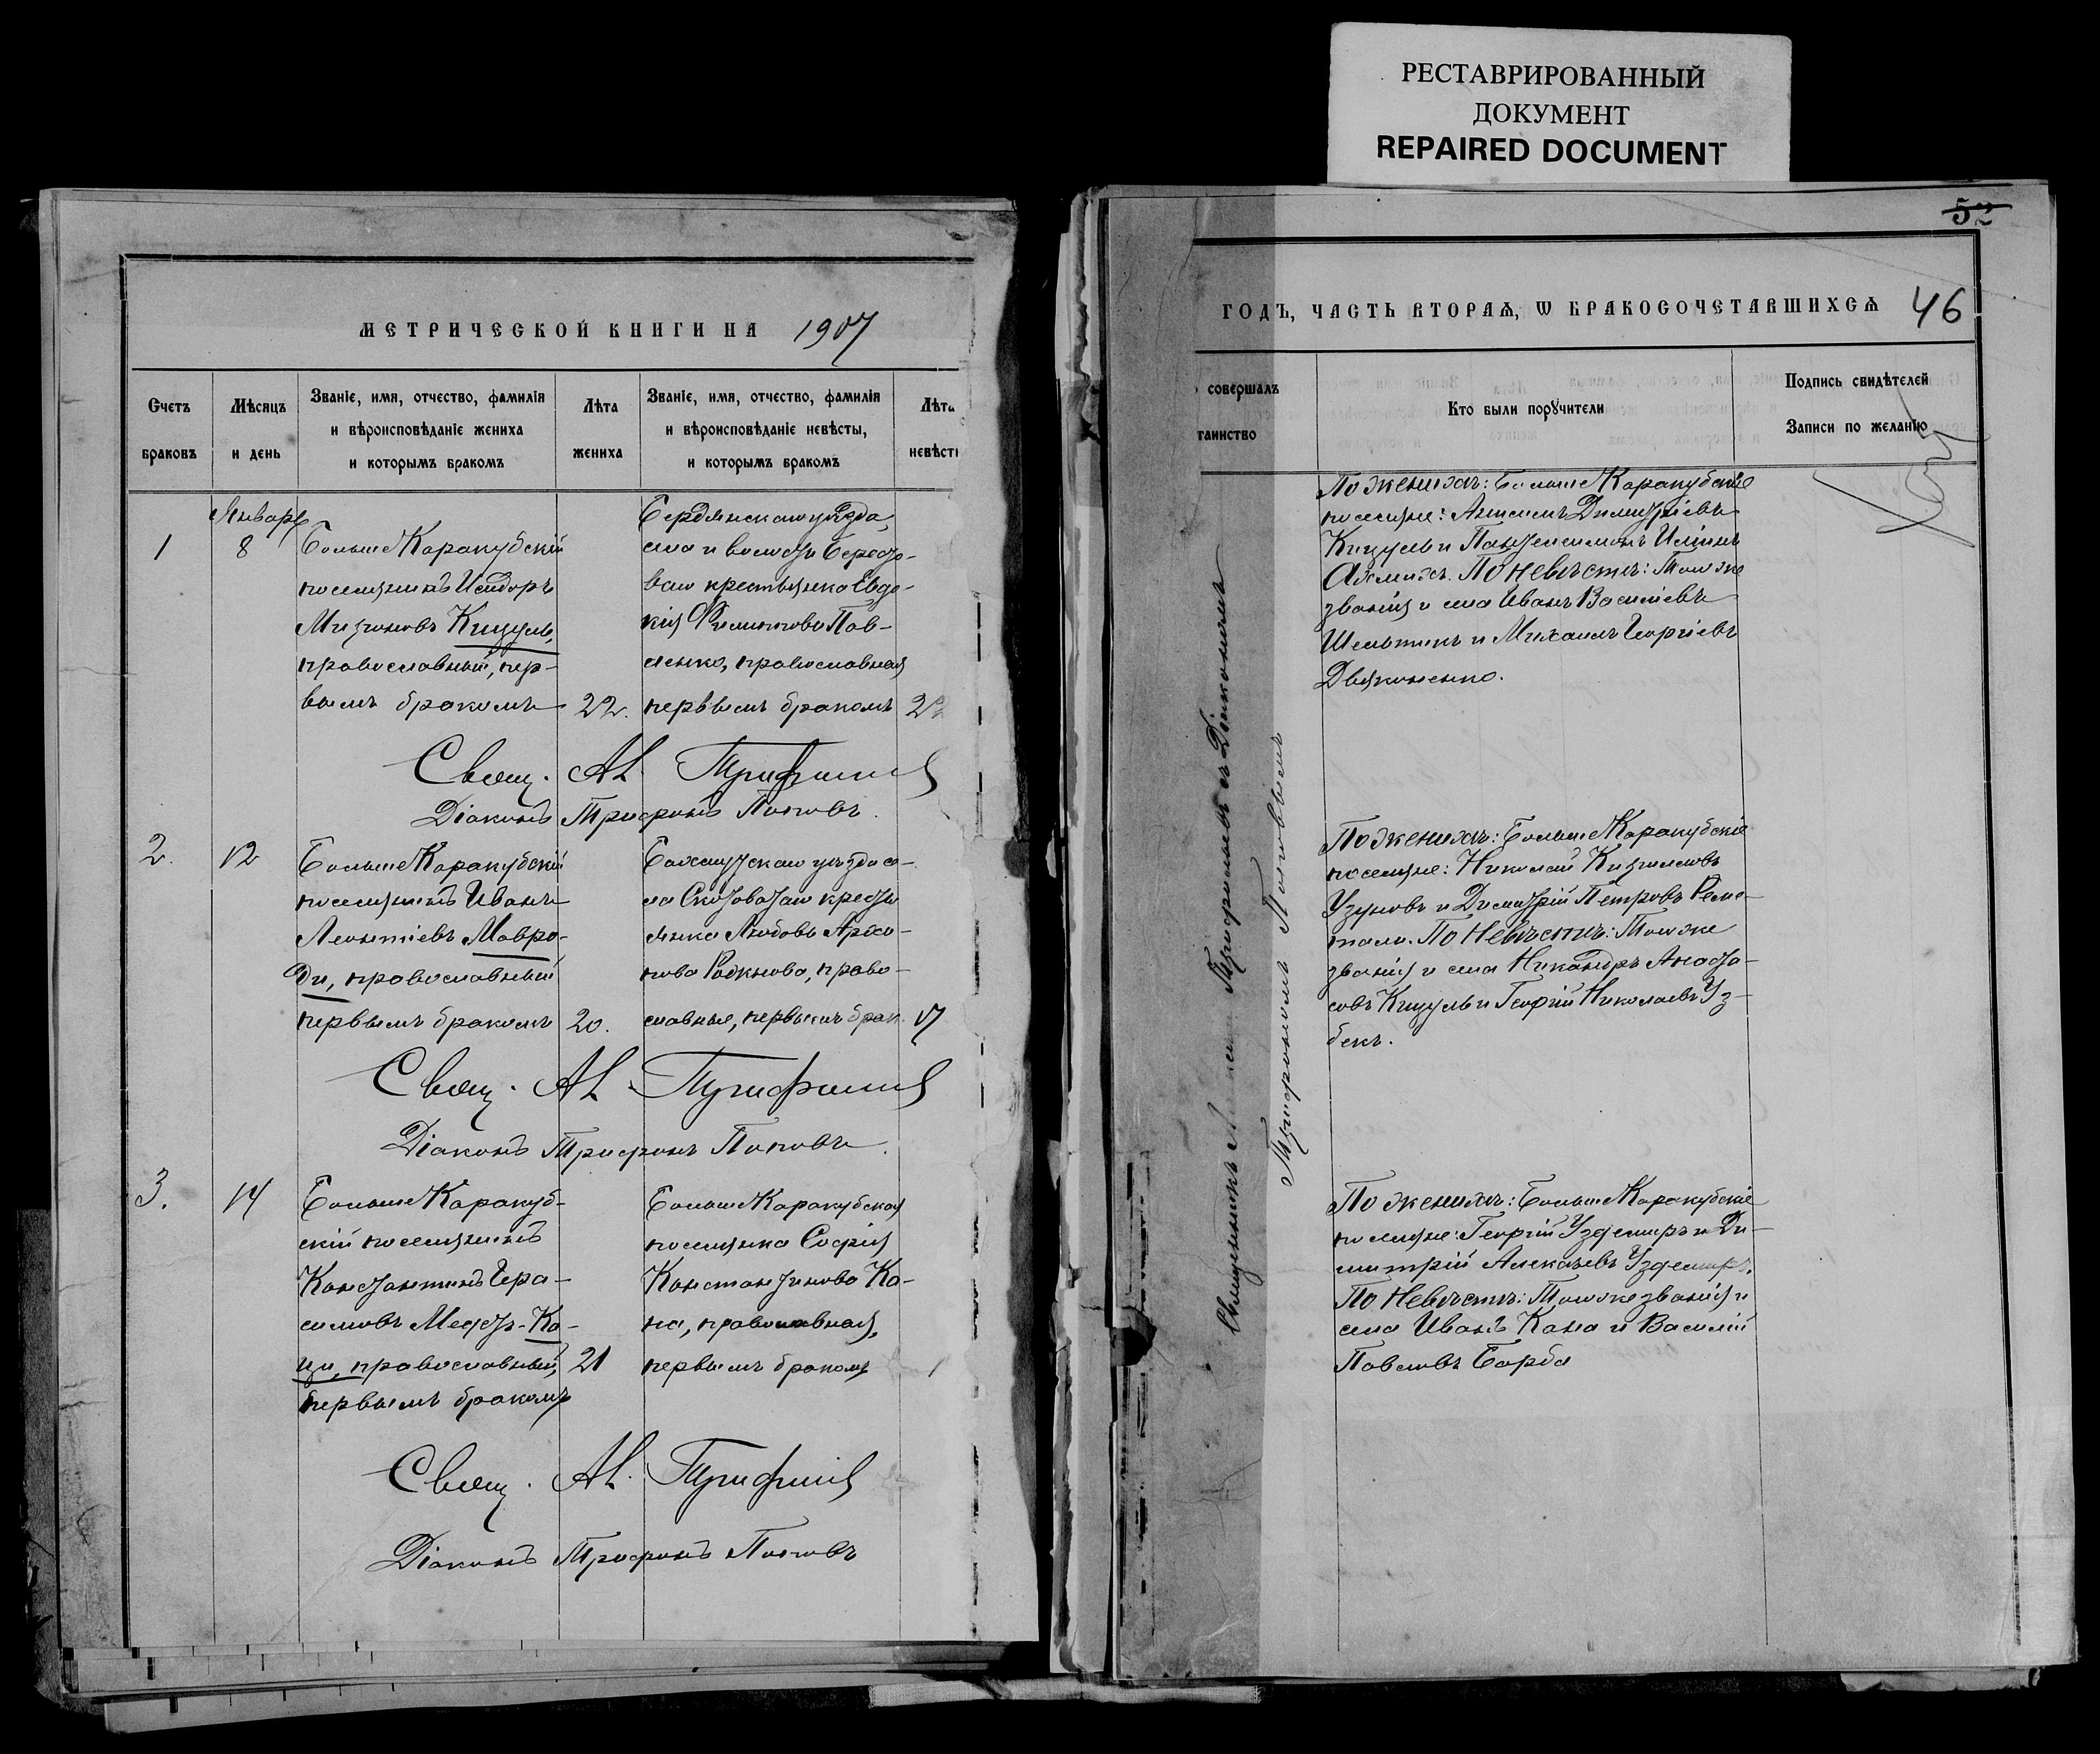 РЕСТАВРИРОВАННЫЙ
ДОКУМЕНТ
REPAIRED DOCUMENT
МЕТРИЧЕСКОЙ КНИГИ НА 1907
Счетъ браковъ
Мѣсяцъ и день
Званіе, имя, отчество, фамилія
и вѣроисповѣданіе жениха
и которымъ бракомъ
Лѣта жениха
Званіе, имя, отчество, фамилія
и вѣроисповѣданіе невѣсты,
и которымъ бракомъ
Лѣта невѣсты
Январь
1
8
Больше Каракубскій
поселянинъ Исидоръ
Митрофановъ Кицулъ,
православный, пер-
вымъ бракомъ
22.
Бердянскаго уѣзда,
села и волости Бересто-
ваго крестьянка Евдо-
кія Филиппова Пав-
ленко, православная
первымъ бракомъ
Свящ. Ал. Трифилій
Діаконъ Трифонъ Поповъ.
2.
12
Больше Каракубскій
поселянинъ Иванъ
Леонтіевъ Мавро-
ди, православный
первымъ бракомъ
20.
Бахмутскаго уѣзда се-
ла Скотоватаго кресть
янка Любовь
Радкнова, право-
славная, первымъ брак.
17
Свящ. Ал. Трифилій
Діаконъ Трифонъ Поповъ.
3.
14
Больше Каракуб-
скій поселянинъ
Константинъ Гера-
симовъ Меотъ-Ка-
ци, православный,
первымъ бракомъ
21
Больше Каракубская
поселянка Софія
Константинова Ка-
на, православная,
первымъ бракомъ
Свящ. Ал. Трифилій
Діаконъ Трифонъ Поповъ
52
ГОДЪ, ЧАСТЬ ВТОРАѦ, Ѡ БРАКОСОЧЕТАВШИХСѦ 46
совершалъ
таинство
Кто были порꙋчители
Подпись свидѣтелей
Записи по желанію
Священникъ Трифиліевъ съ Діакономъ
Трифономъ Поповымъ
По женихѣ: Больше Каракубскіе
поселяне: Димитріевъ
Кицулъ и Пантелеимонъ Ильинъ
По невѣстѣ: Того же
званія и села Иванъ Васильевъ
Шельтикъ и Михаилъ Георгіевъ
Дьяконенко.
По женихѣ: Больше Каракубскіе
поселяне: Николай
Узуновъ и Димитрій Петровъ
По невѣстѣ: Того же
званія и села Никандръ Анаста-
совъ Кицулъ и Георгій Николаевъ Уз-
бекъ.
По женихѣ: Больше Каракубскіе
поселяне: Георгій Уздемиръ и Ди-
митрій Алексѣевъ Уздемиръ.
По невѣстѣ: Того же званія и
села Иванъ Кана и Василій
Павловъ Барба